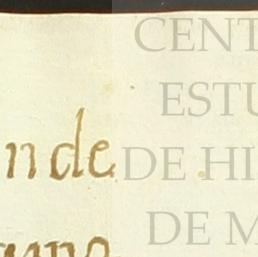 CENT
ESTU
nde DE HI
DE M